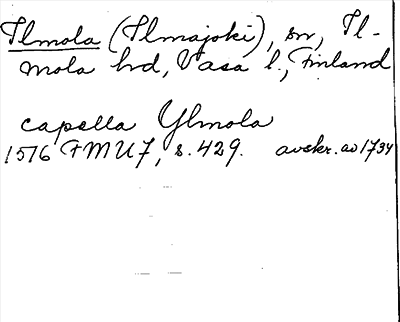 Ilmola (Ilmajoki), sn, Il-
mola hd, Vasa l., Finland
capella Ylmola
1516 FMU 7, s. 429. avskr. av 1734